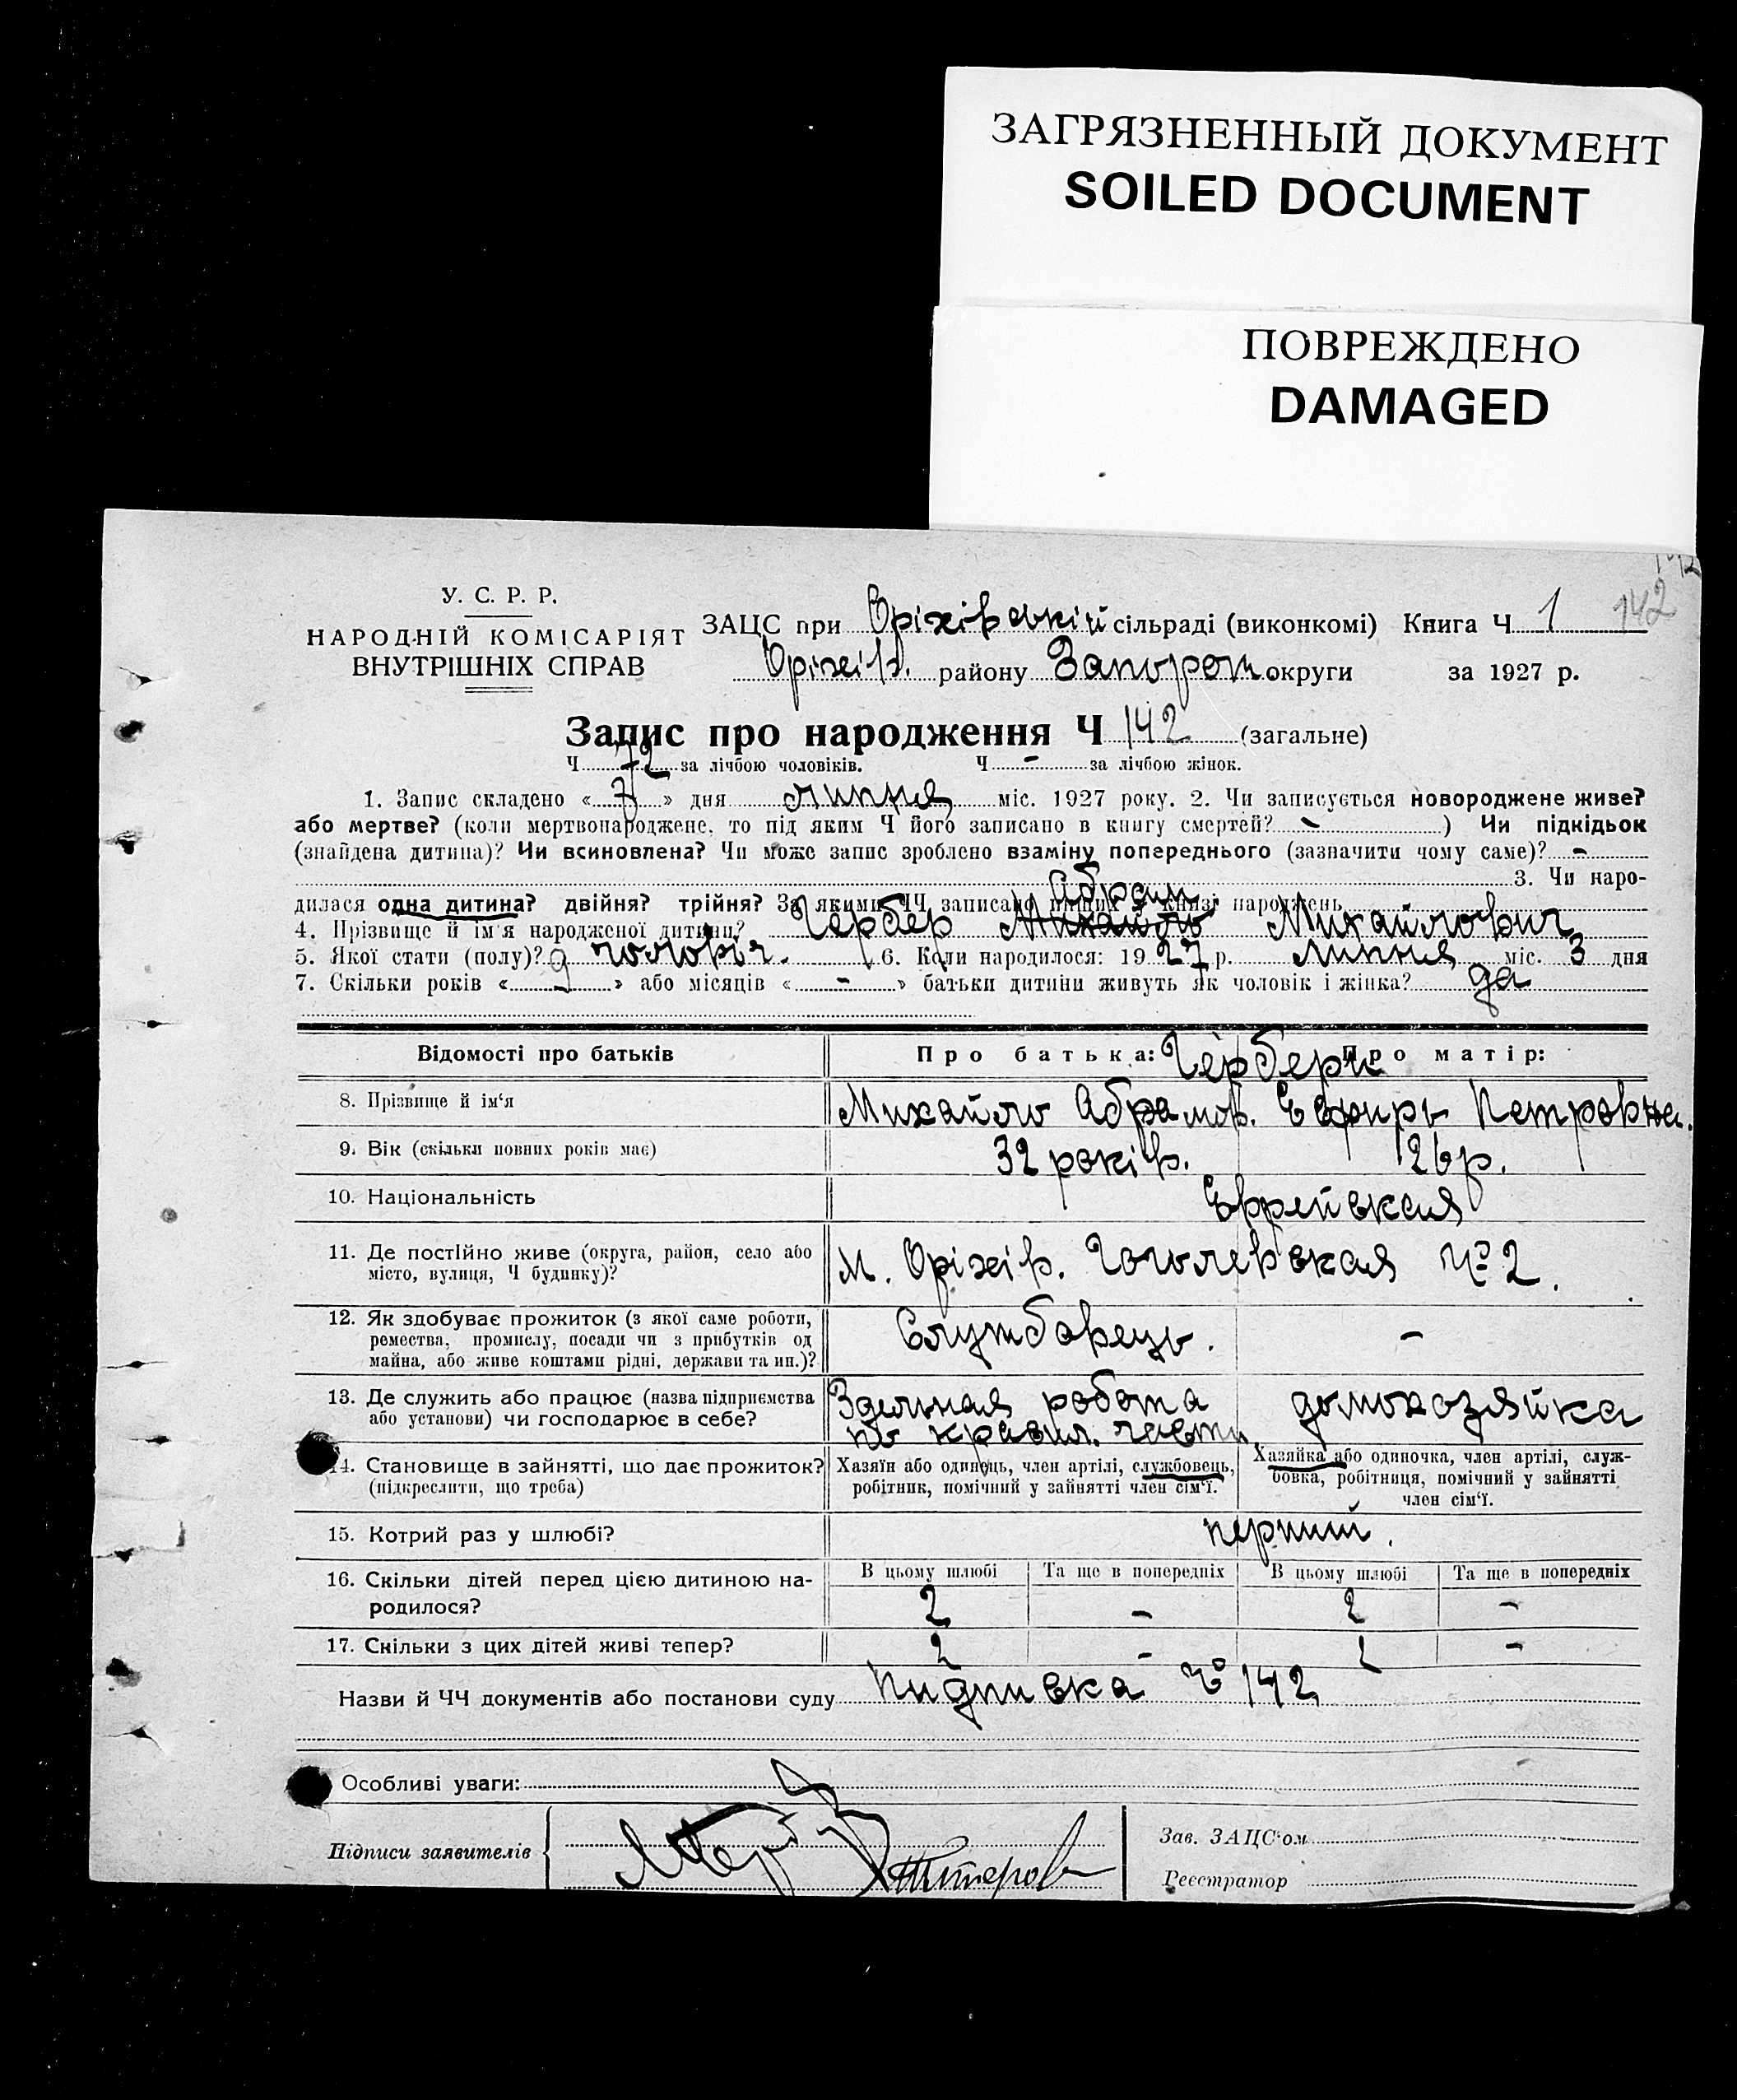 ЗАГРЯЗНЕННЫЙ ДОКУМЕНТ
SOILED DOCUMENT
ПОВРЕЖДЕНО
DAMAGED
142
У. С. Р. Р.
НАРОДНІЙ КОМІСАРІЯТ
ВНУТРІШНІХ СПРАВ
ЗАЦС при Оріхівській сільраді (виконкомі) Книга Ч 1
Оріхів. району Запорож. округи за 1927 р.
Запис про народження Ч 142 (загальне)
Ч 72 за лічбою чоловіків. Ч - за лічбою жінок.
1. Запис складено « 7 » дня липня міс. 1927 року. 2. Чи записується новороджене живе?
або мертве? (коли мертвонароджене, то під яким Ч його записано в книгу смертей? - ) Чи підкідьок
(знайдена дитина)? Чи всиновлена? Чи може запис зроблено взаміну попереднього (зазначити чому саме)? -
3. Чи наро-
дилася одна дитина? двійня? трійня? За якими ЧЧ записано інших у книзі народжень
Абрам
4. Прізвище й ім'я народженої дитини? Гербер Михайло Михайлович
5. Якої стати (полу)? чоловіч. 6. Коли народилося: 1927 р. липня міс. 3 дня
7. Скільки років « 9 » або місяців « - » батьки дитини живуть як чоловік і жінка? да
Відомості про батьків Про батька: Про матір:
Гербери
8. Прізвище й ім'я Михайло Абрамов. Есфирь Петровна.
9. Вік (скільки повних років має) 32 років. 26 р.
10. Національність Еврейская
11. Де постійно живе (округа, район, село або
місто, вулиця, Ч будинку)? м. Оріхів. Гоголевская № 2.
12. Як здобуває прожиток (з якої саме роботи,
ремества, промислу, посади чи з прибутків од
майна, або живе коштами рідні, держави та ин.)?
Службовець. -
13. Де служить або працює (назва підприємства
або установи) чи господарює в себе?
Здельная робота
по части
домохозяйка
14. Становище в зайнятті, що дає прожиток?
(підкреслити, що треба)
Хазяїн або одинець, член артілі, службовець,
робітник, помічний у зайнятті член сім'ї.
Хазяйка або одиночка, член артілі, служ-
бовка, робітниця, помічний у зайнятті
член сім'ї.
15. Котрий раз у шлюбі? перший.
16. Скільки дітей перед цією дитиною на-
родилося?
В цьому шлюбі Та ще в попередніх В цьому шлюбі Та ще в попередніх
2 - 2 -
17. Скільки з цих дітей живі тепер? 2 - 2 -
Назви й ЧЧ документів або постанови суду № 142
Особливі уваги:
Підписи заявителів
Зав. ЗАЦС'ом
Реєстратор